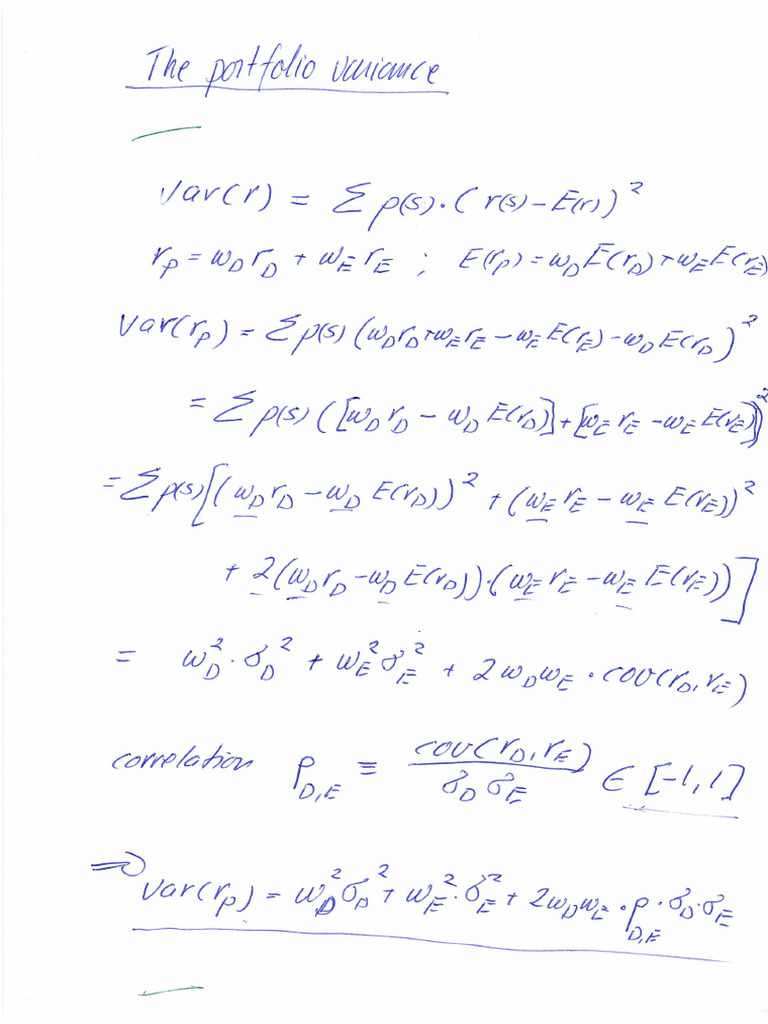 The portfolio variance
Var(r) = Σ p(s)·(r(s) – E(r))²
r_P = w_D r_D + w_E r_E ; E(r_P) = w_D E(r_D) + w_E E(r_E)
Var(r_P) = Σ p(s) (w_D r_D + w_E r_E – w_E E(r_E) – w_D E(r_D))²
= Σ p(s) ([w_D r_D – w_D E(r_D)] + [w_E r_E – w_E E(r_E)])²
= Σ p(s) [(w_D r_D – w_D E(r_D))² + (w_E r_E – w_E E(r_E))²
+ 2(w_D r_D – w_D E(r_D))·(w_E r_E – w_E E(r_E))]
= w_D²·σ_D² + w_E² σ_E² + 2 w_D w_E · cov(r_D, r_E)
correlation ρ_D,E ≡ cov(r_D, r_E) / σ_D σ_E ∈ [-1, 1]
⇒ Var(r_P) = w_D² σ_D² + w_E²·σ_E² + 2 w_D w_E · ρ_D,E · σ_D · σ_E